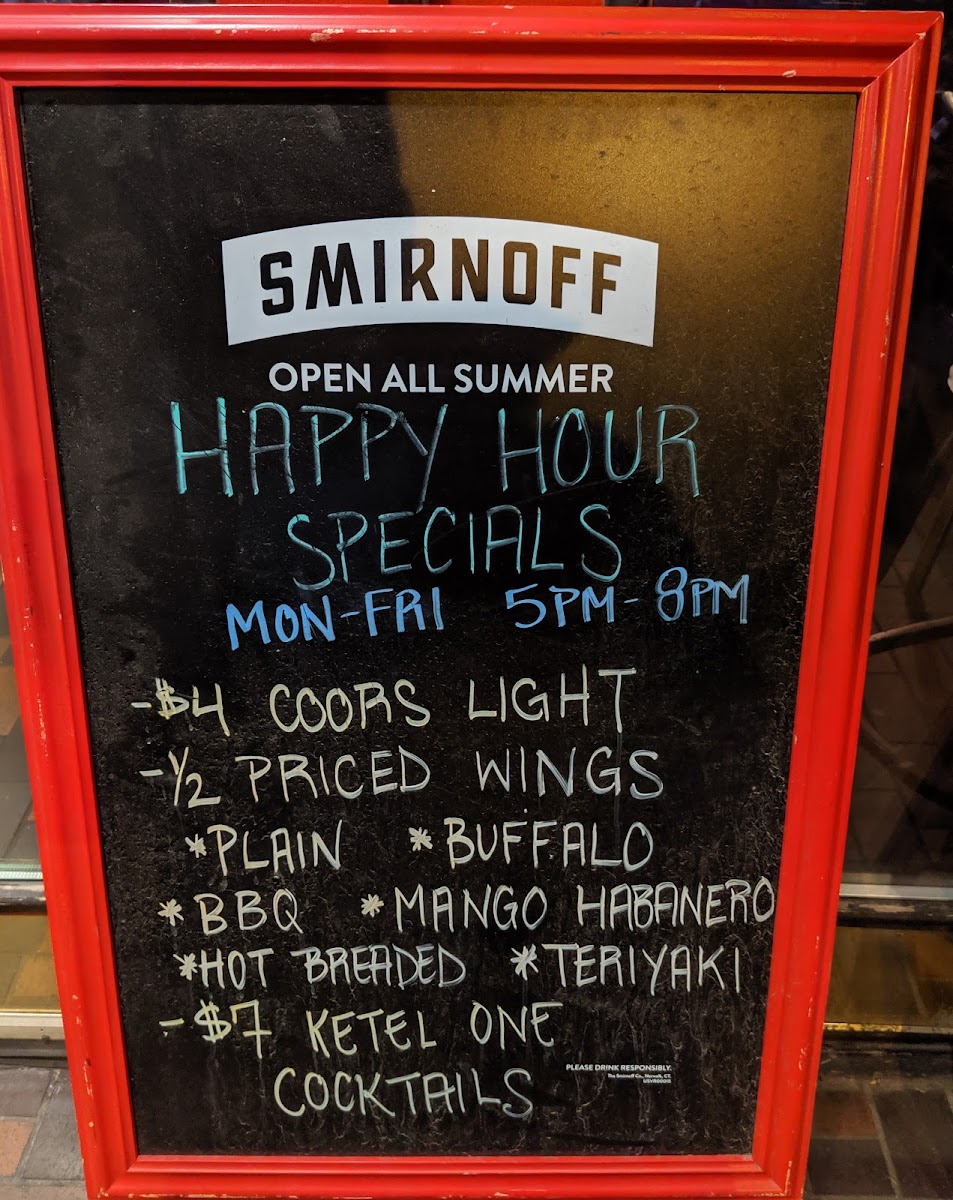 SMIRNOFF
OPEN ALL SUMMER
HAPPY HOUR
SPECIALS
MON-FRI 5PM-8PM
-$4 COORS LIGHT
-1/2 PRICED WINGS
*PLAIN *BUFFALO
*BBQ *MANGO HABANERO
*HOT BREADED *TERIYAKI
-$7 KETEL ONE
COCKTAILS
PLEASE DRINK RESPONSIBLY.
The Smirnoff Co., Norwalk, CT.